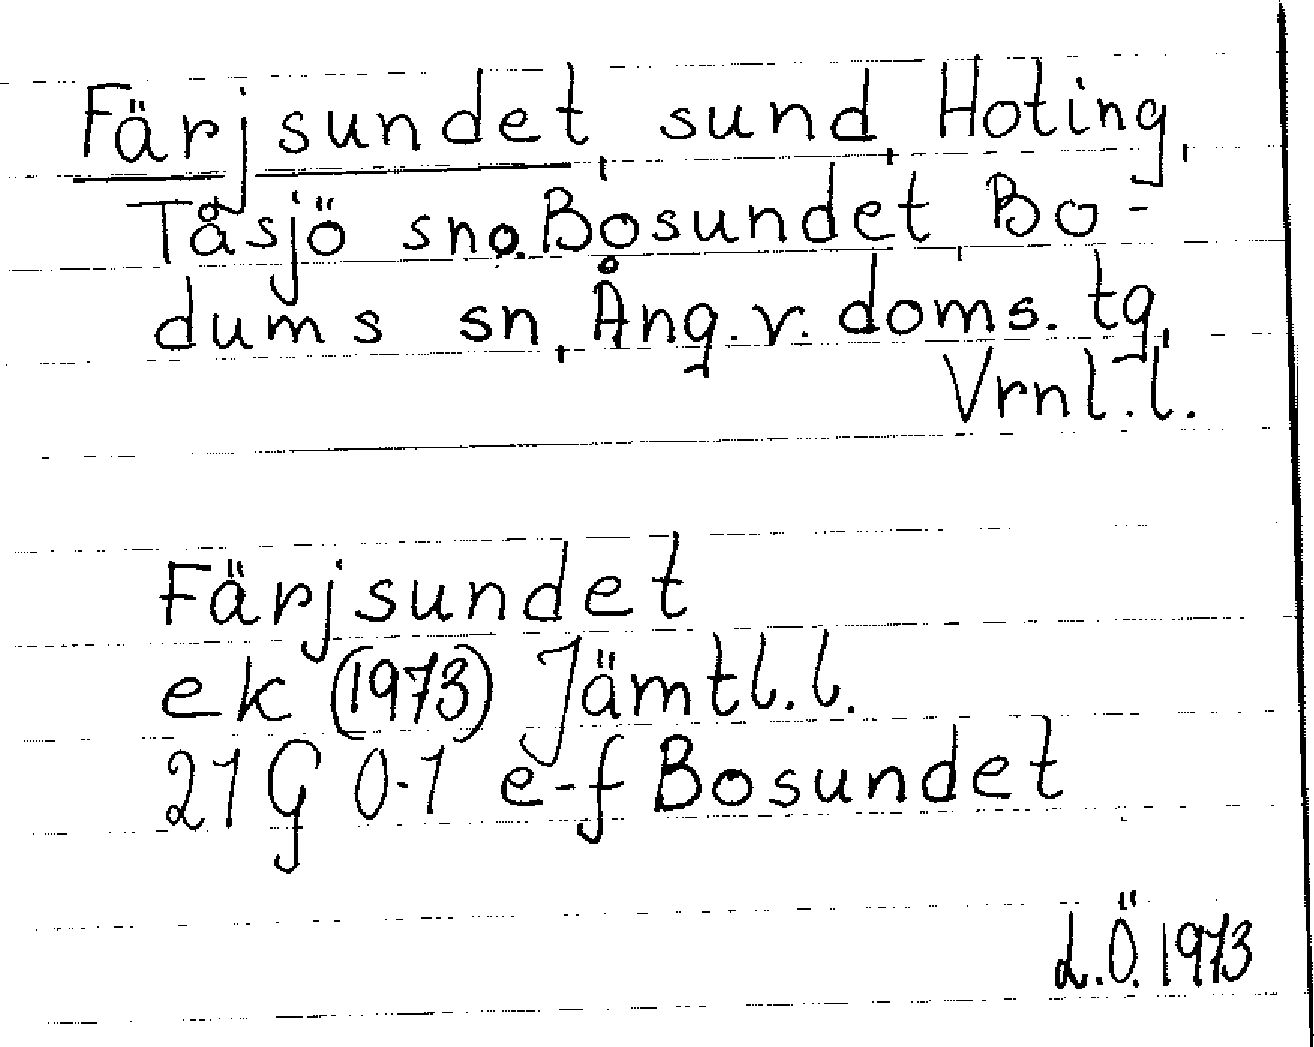 Färjsundet, sund, Hoting,
Tåsjö sn o. Bosundet, Bo-
dums sn, Ång. v. doms. tg,
Vrnl. l.
Färjsundet
ek (1973) Jämtl. l.
21 G 0-1 e-f Bosundet
L.Ö. 1973